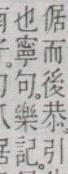 倨而後恭。引
也寧句。樂記。